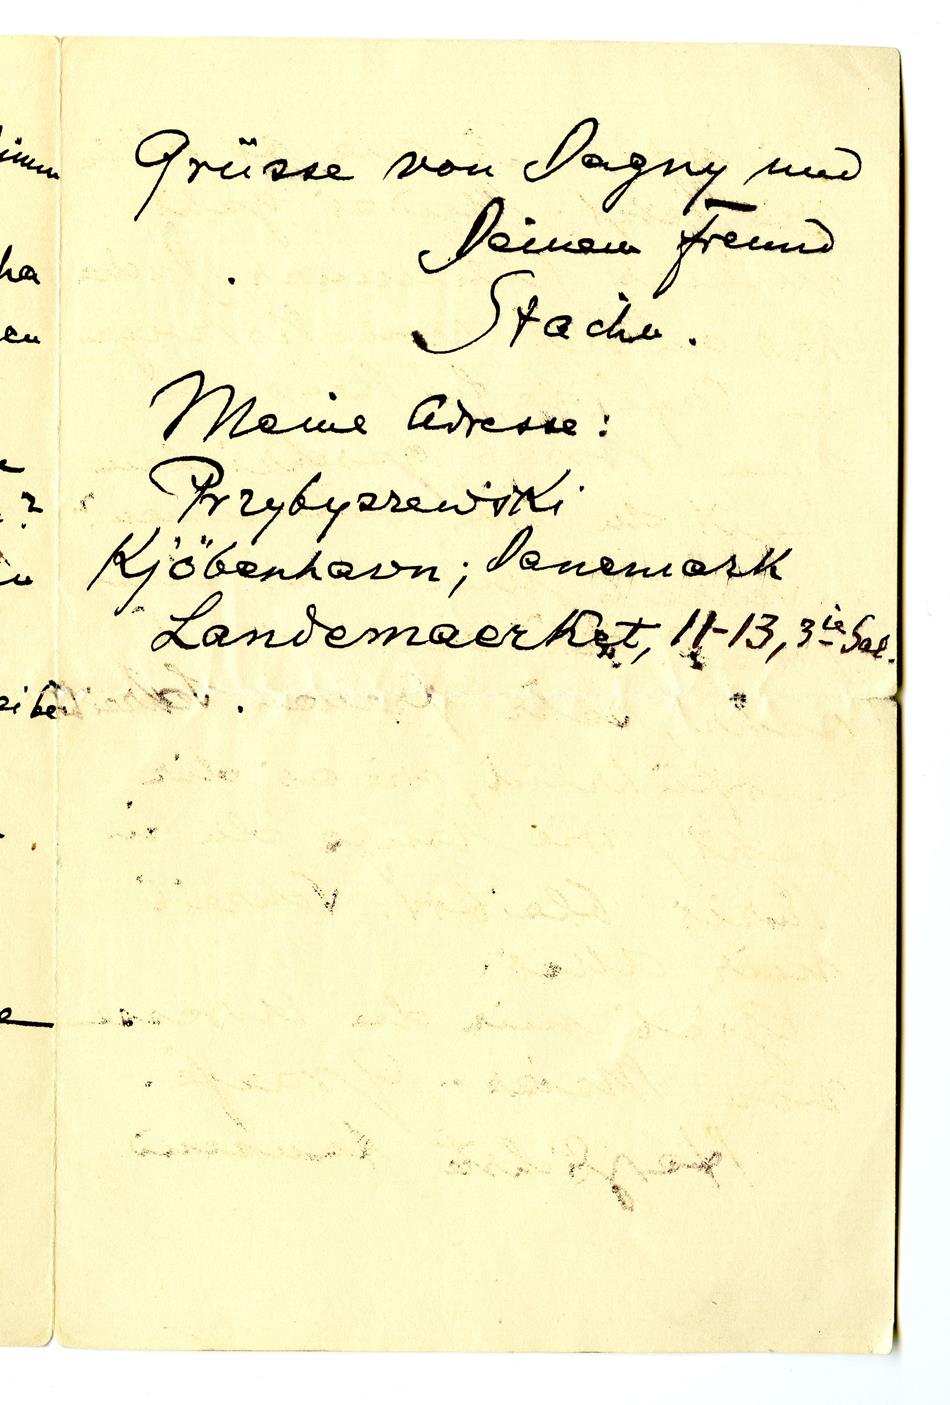 Grüsse von Dagny und
Deinem Freund
Stachu.
Meine Adresse:
Przybyszewski
Kjöbenhavn; Danemark
Landemaerket, 11-13, 3ie Sal.